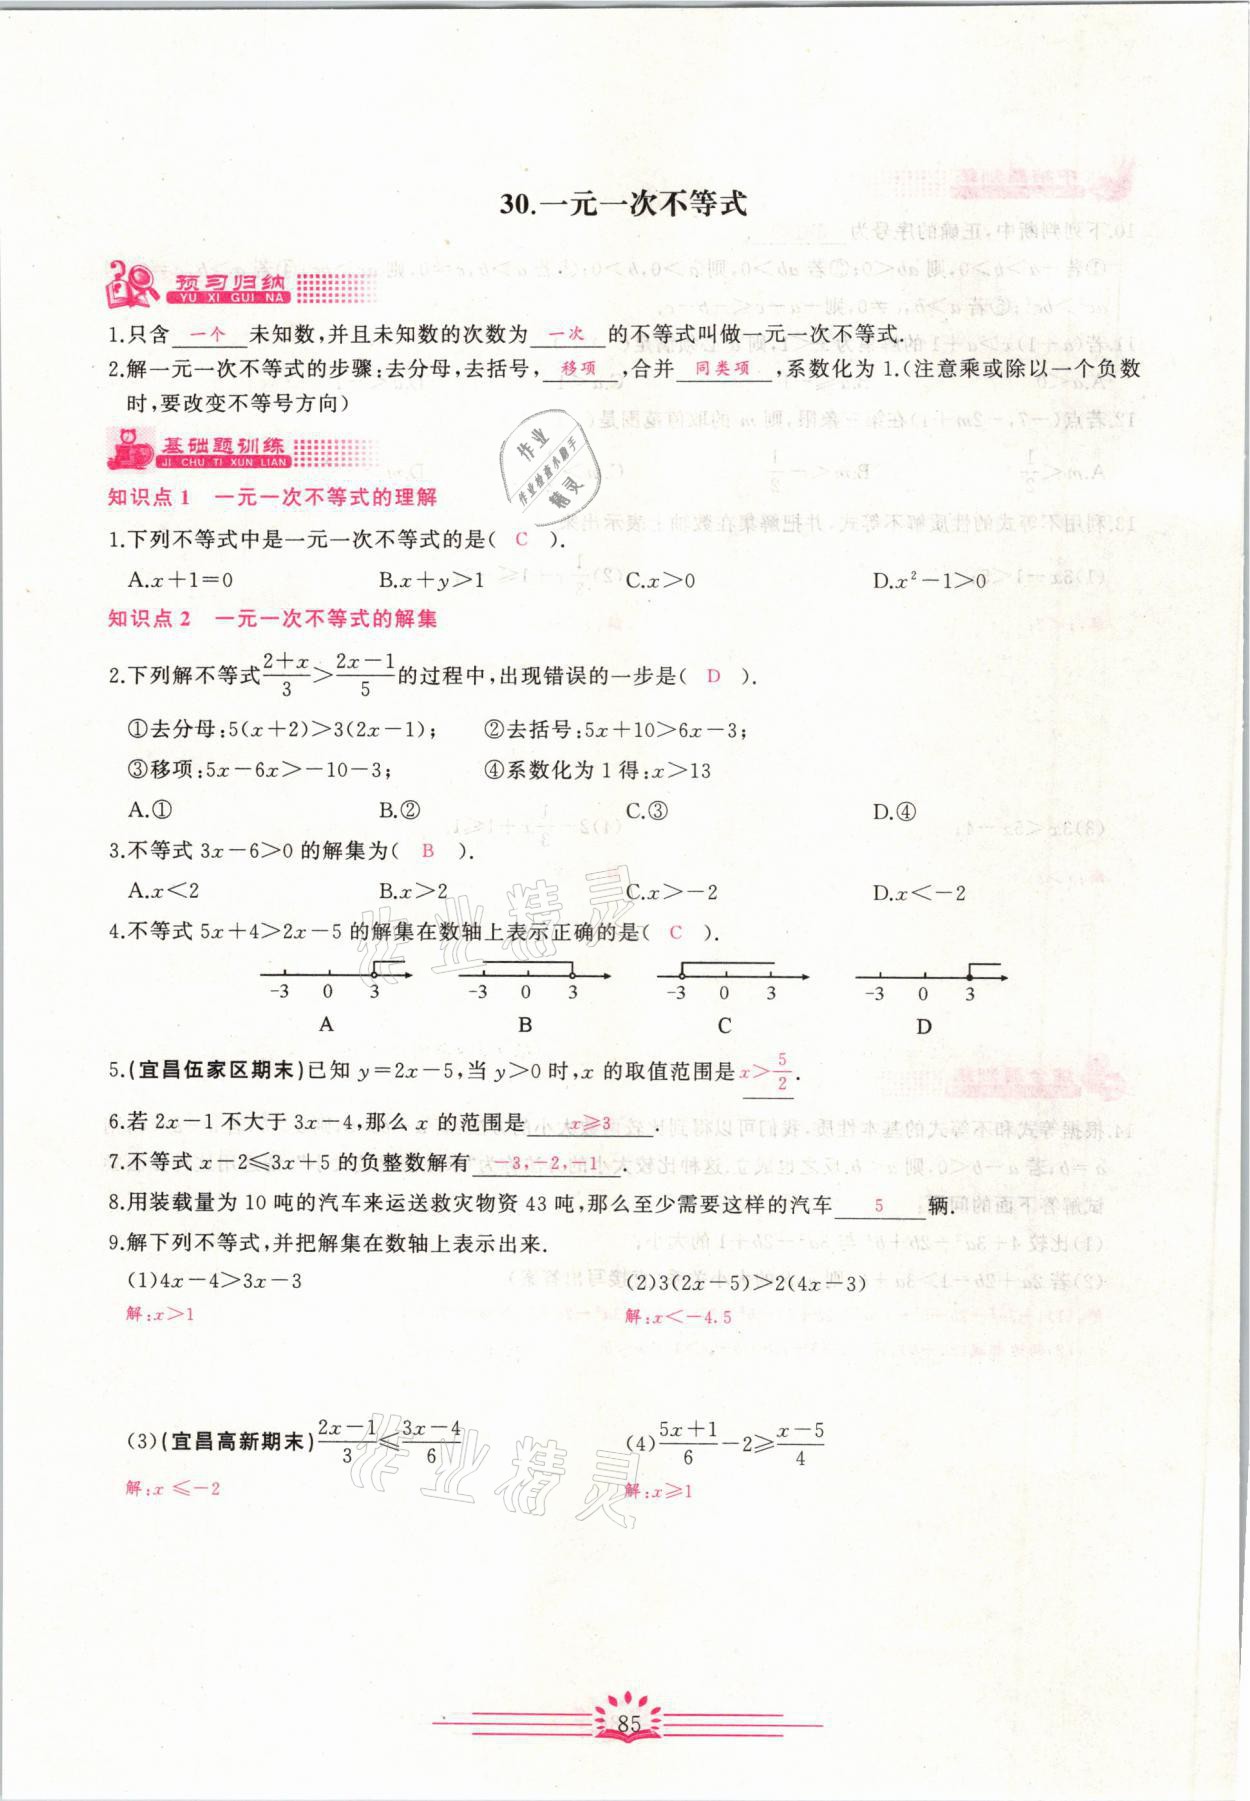 30.一元一次不等式
预习归纳
YU XI GUI NA
1.只含 一个 未知数,并且未知数的次数为 一次 的不等式叫做一元一次不等式.
2.解一元一次不等式的步骤:去分母,去括号, 移项 ,合并 同类项 ,系数化为 1.(注意乘或除以一个负数
时,要改变不等号方向)
基础题训练
JI CHU TI XUN LIAN
知识点 1 一元一次不等式的理解
1.下列不等式中是一元一次不等式的是( C ).
A.x+1=0 B.x+y>1 C.x>0 D.x²-1>0
知识点 2 一元一次不等式的解集
2.下列解不等式(2+x)/3>(2x-1)/5的过程中,出现错误的一步是( D ).
①去分母:5(x+2)>3(2x-1); ②去括号:5x+10>6x-3;
③移项:5x-6x>-10-3; ④系数化为 1 得:x>13
A.① B.② C.③ D.④
3.不等式 3x-6>0 的解集为( B ).
A.x<2 B.x>2 C.x>-2 D.x<-2
4.不等式 5x+4>2x-5 的解集在数轴上表示正确的是( C ).
-3 0 3 -3 0 3 -3 0 3 -3 0 3
A B C D
5.(宜昌伍家区期末)已知 y=2x-5,当 y>0 时,x 的取值范围是 x>5/2.
6.若 2x-1 不大于 3x-4,那么 x 的范围是 x≥3 .
7.不等式 x-2≤3x+5 的负整数解有 -3,-2,-1 .
8.用装载量为 10 吨的汽车来运送救灾物资 43 吨,那么至少需要这样的汽车 5 辆.
9.解下列不等式,并把解集在数轴上表示出来.
(1)4x-4>3x-3 (2)3(2x-5)>2(4x-3)
解:x>1 解:x<-4.5
(3)(宜昌高新期末)(2x-1)/3≤(3x-4)/6 (4)(5x+1)/6-2≥(x-5)/4
解:x≤-2 解:x≥1
85
作业
作业检查小助手
精灵
作业精灵
作业精灵